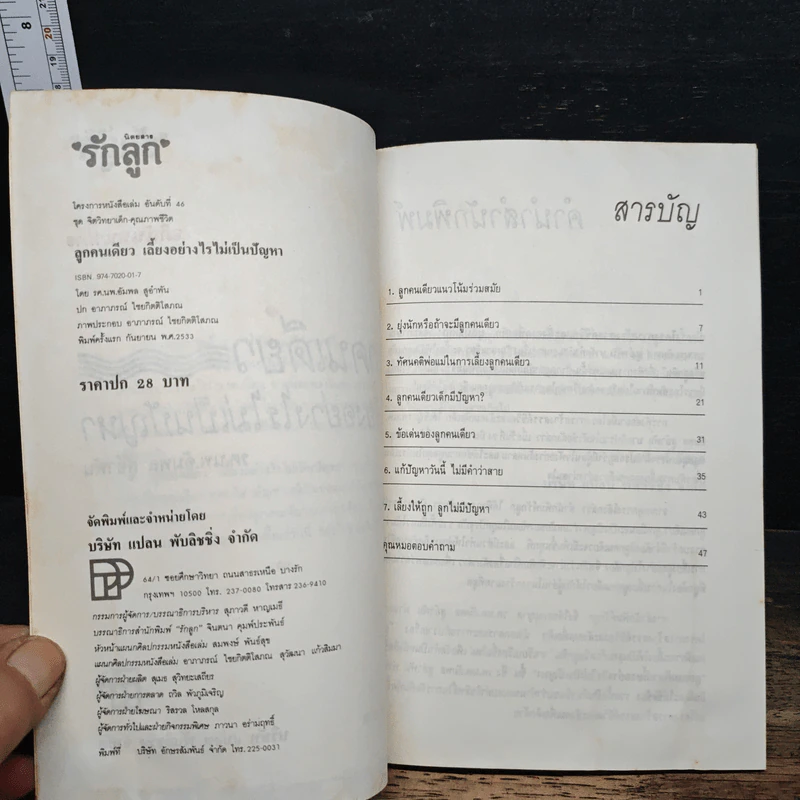 8
20
19
18
นิตยสาร
รักลูก
โครงการหนังสือเล่ม อันดับที่ 46
ชุด จิตวิทยาเด็ก-คุณภาพชีวิต
ลูกคนเดียว เลี้ยงอย่างไรไม่เป็นปัญหา
ISBN. 974-7020-01-7
โดย รศ.นพ.อัมพล สูอำพัน
ปก อาภาภรณ์ ไชยกิตติโสภณ
ภาพประกอบ อาภาภรณ์ ไชยกิตติโสภณ
พิมพ์ครั้งแรก กันยายน พ.ศ.2533
ราคาปก 28 บาท
จัดพิมพ์และจำหน่ายโดย
บริษัท แปลน พับลิชชิ่ง จำกัด
64/1 ซอยศึกษาวิทยา ถนนสาธรเหนือ บางรัก
กรุงเทพฯ 10500 โทร. 237-0080 โทรสาร 236-9410
กรรมการผู้จัดการ/บรรณาธิการบริหาร สุภาวดี หาญเมธี
บรรณาธิการสำนักพิมพ์ "รักลูก" จินตนา คุมพ์ประพันธ์
หัวหน้าแผนกศิลปกรรมหนังสือเล่ม สมพงษ์ พันธ์สุข
แผนกศิลปกรรมหนังสือเล่ม อาภาภรณ์ ไชยกิตติโสภณ สุวัฒนา แก้วสิมมา
ผู้จัดการฝ่ายผลิต สุเมธ สุวิทยะเสถียร
ผู้จัดการฝ่ายการตลาด ถวิล พัวภูมิเจริญ
ผู้จัดการฝ่ายโฆษณา ริสรวล ไหลสกุล
ผู้จัดการทั่วไปและฝ่ายกิจกรรมพิเศษ ภาวนา อร่ามฤทธิ์
พิมพ์ที่ บริษัท อักษรสัมพันธ์ จำกัด โทร. 225-0031
สารบัญ
1. ลูกคนเดียวแนวโน้มร่วมสมัย 1
2. ยุ่งนักหรือถ้าจะมีลูกคนเดียว 7
3. ทัศนคติพ่อแม่ในการเลี้ยงลูกคนเดียว 11
4. ลูกคนเดียวเด็กมีปัญหา? 21
5. ข้อเด่นของลูกคนเดียว 31
6. แก้ปัญหาวันนี้ ไม่มีคำว่าสาย 35
7. เลี้ยงให้ถูก ลูกไม่มีปัญหา 43
คุณหมอตอบคำถาม 47